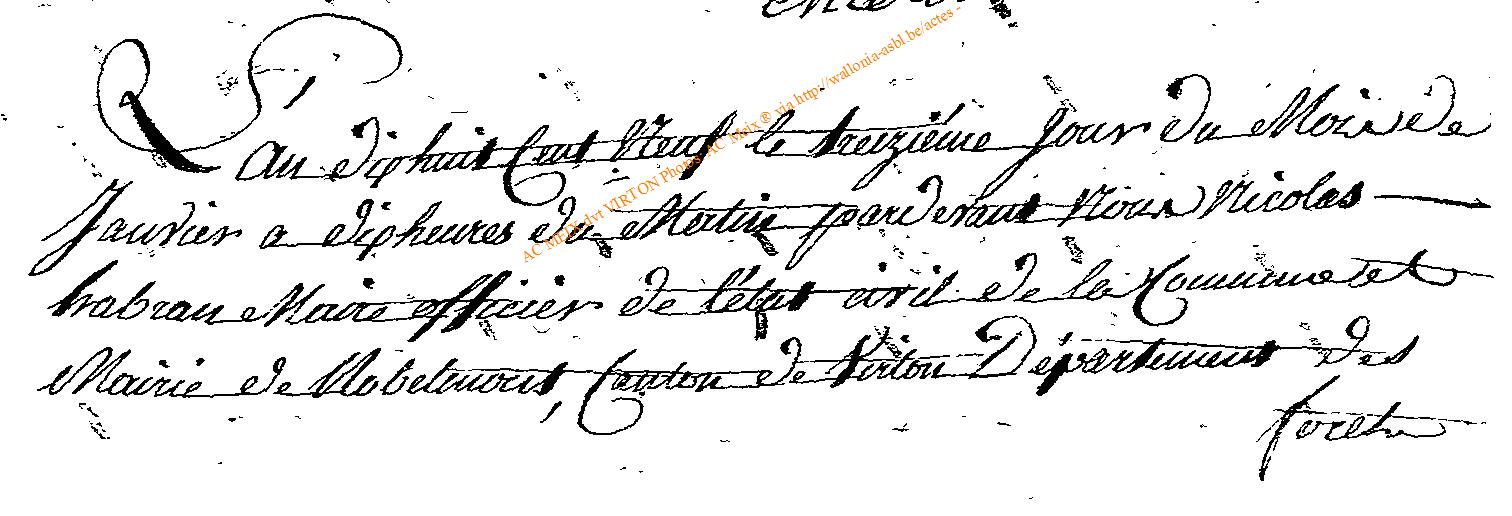 L'an dix huit Cent Neuf le treizième Jour du Mois de
Janvier a dix heures du Matin pardevant Nous Nicolas
habran Maire officier de l'état civil de la Commune et
Mairie de Robelmont, Canton de Virton Département des
foretz
AC MEIX dvt VIRTON Photos AC Meix ® via http://wallonia-asbl.be/actes -